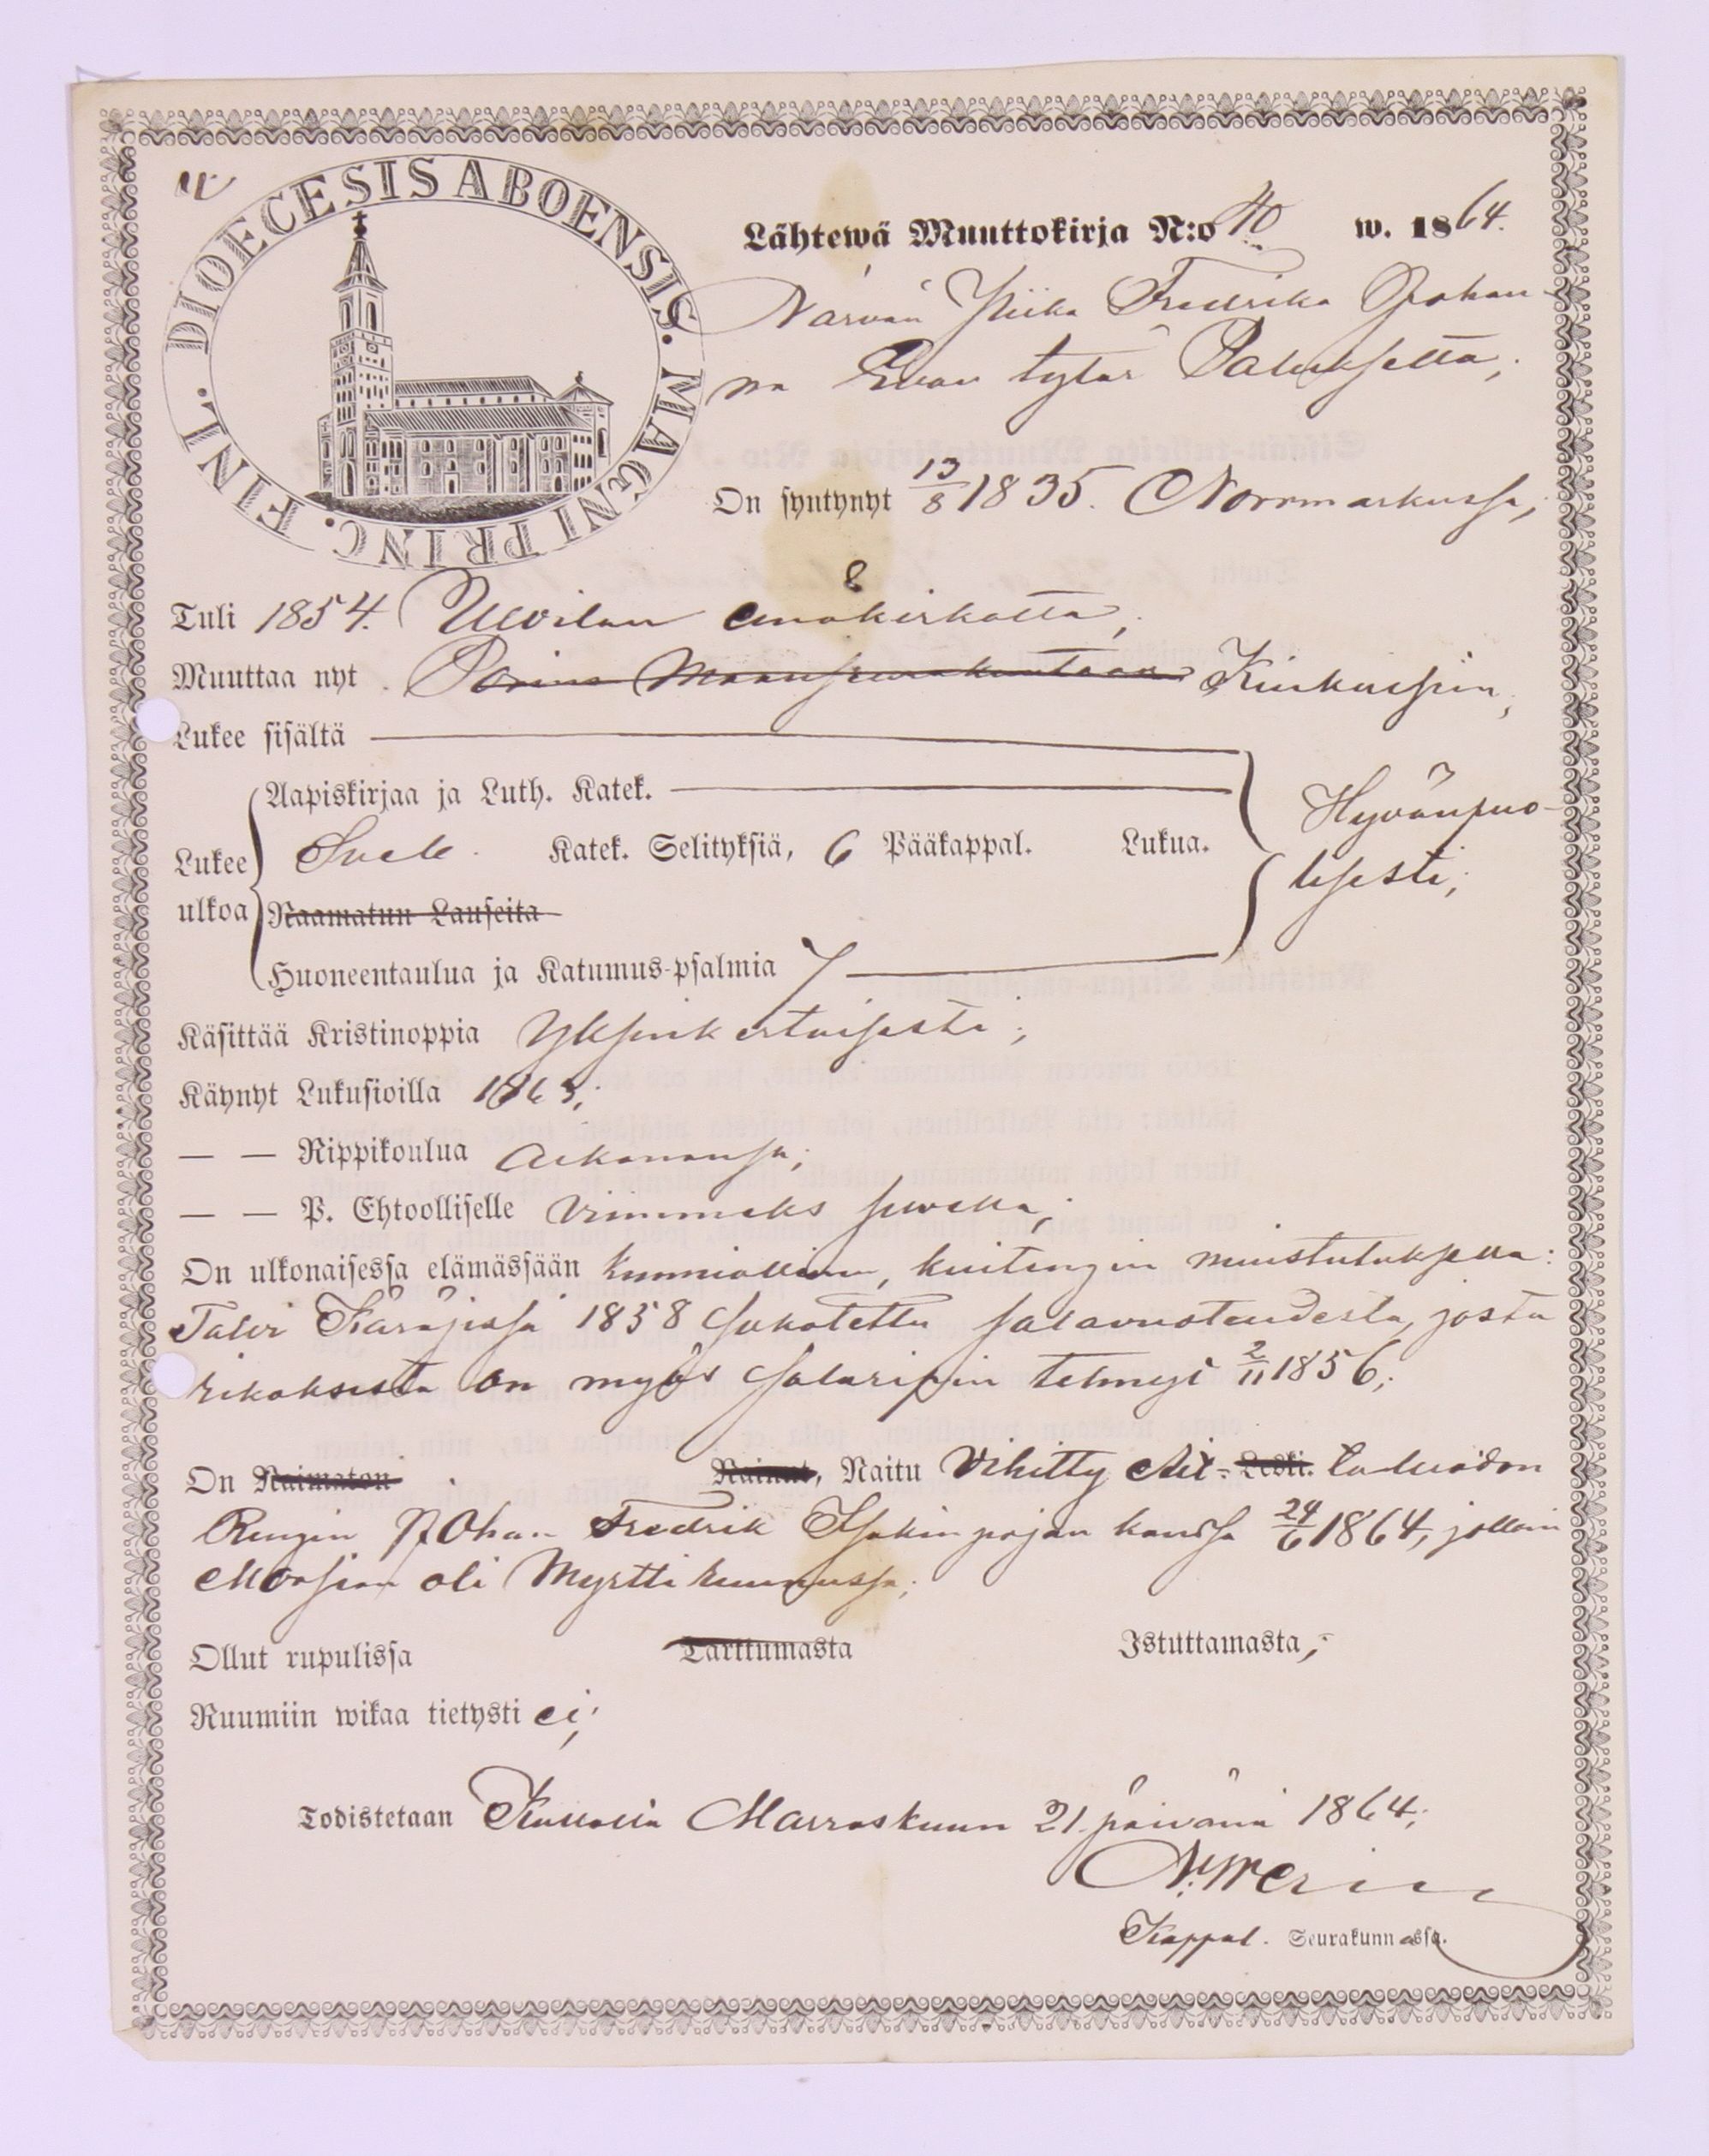 DIOECESIS ABOENSIS. MAGNI PRINC. FINL.
Lähtewä Muuttokirja N:o 40 w. 1864.
Fredrika Johan-
na tytär
On syntynyt 13/8 1835. Norrmarkussa,
Tuli 1854. Ulvilan emäkirkolta,
Muuttaa nyt Porins Maanseurakuntaan Kiukaisiin,
Lukee sisältä
Aapiskirjaa ja Luth. Katek.
Hyvänpuo-
Lukee Sveb. Katek. Selityksiä, 6 Pääkappal. Lukua.
lisesti;
ulkoa Raamatun Lauseita
Huoneentaulua ja Katumus-psalmia 7
Käsittää Kristinoppia Yksinkertaisesti;
Käynyt Lukusioilla 1863;
— — Rippikoulua aikanansa;
— — P. Ehtoolliselle viimmeks suvella;
On ulkonaisessa elämässään kunniallinen, kuitengin muistutuksella:
Talvi Käräjissä 1858 sakotettu salavuoteudesta, josta
rikoksesta on myös salaripin tehnyt 2/11 1856;
On Naimaton Nainut, Naitu Vihitty Leski.
Rengin Johan Fredrik Isakin pojan kanssa 24/6 1864, jolloin
Morsian oli Myrtti kruunussa;
Ollut rupulissa Tarttumasta Istuttamasta,
Ruumiin wikaa tietysti ei;
Todistetaan Kullaalla Marraskuun 21. päivänä 1864;
Kappal. Seurakunnassa.